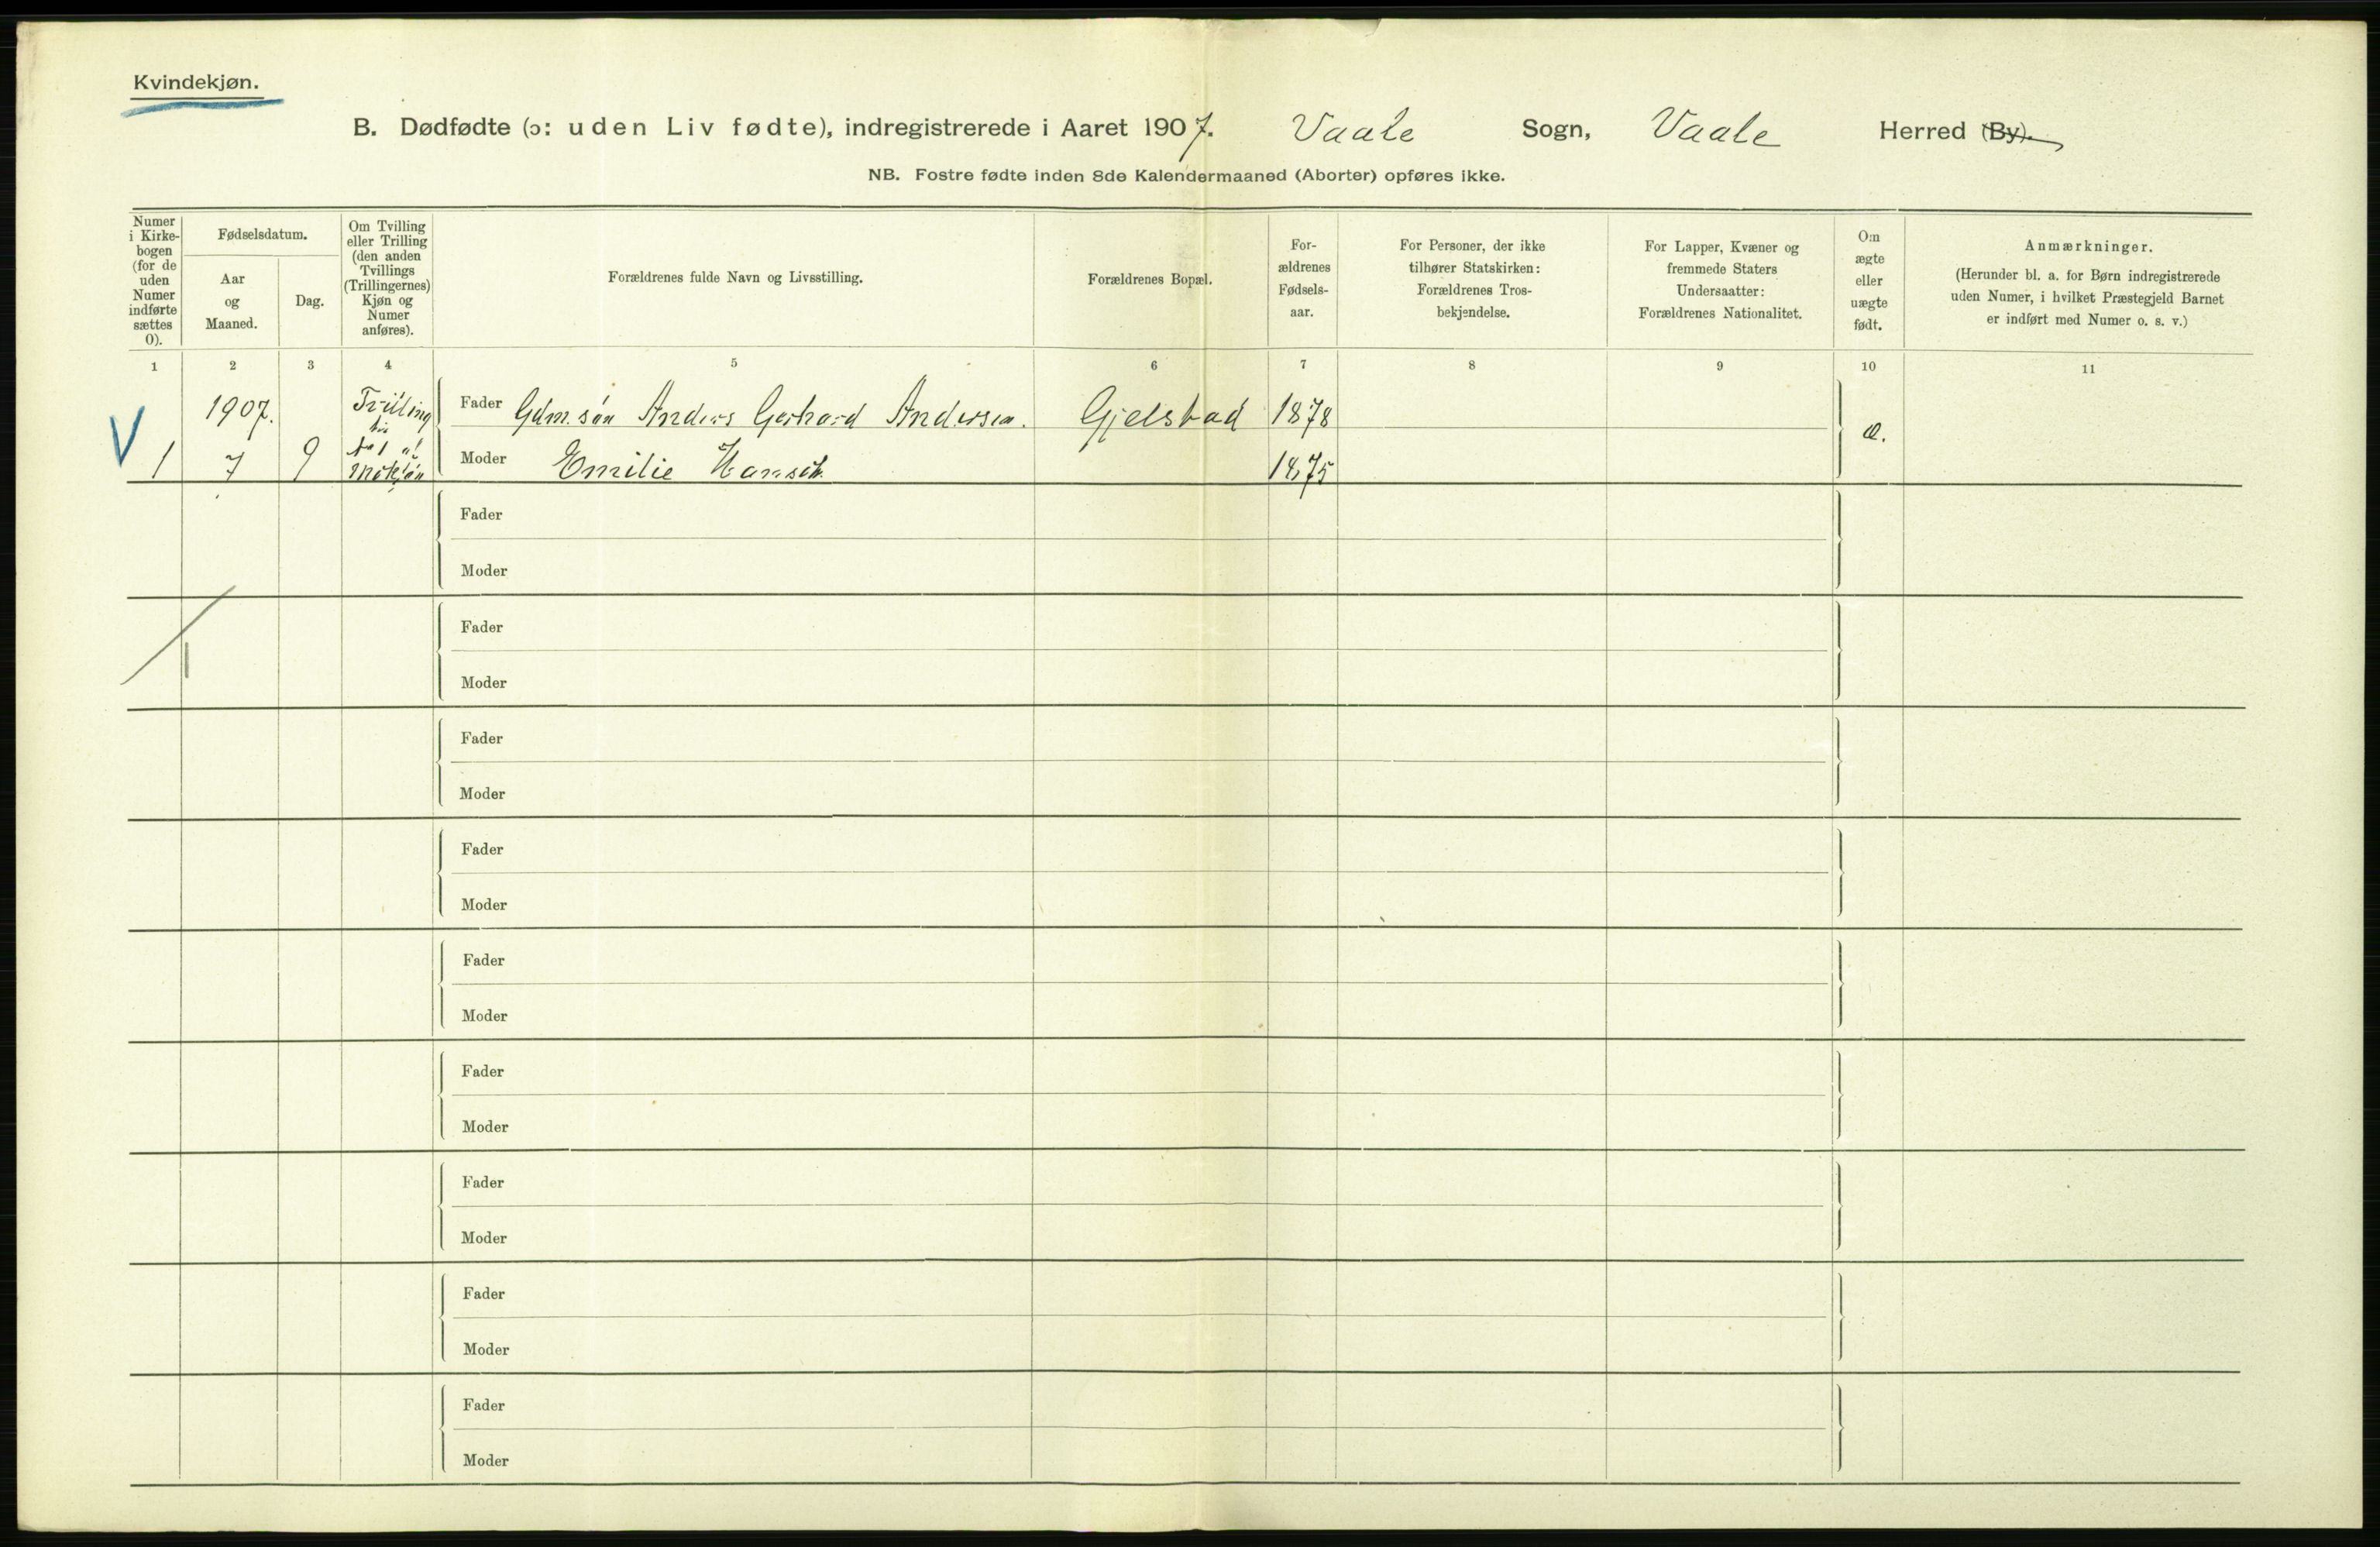 Kvindekjøn.
B. Dødfødte (ɔ: uden Liv fødte), indregistrerede i Aaret 1907. Vaale Sogn, Vaale Herred (By).
NB. Fostre fødte inden 8de Kalendermaaned (Aborter) opføres ikke.
Numer
i Kirke-
bogen
(for de
uden
Numer
indførte
sættes
0).
Fødselsdatum.
Aar
og
Maaned.
Dag.
Om Tvilling
eller Trilling
(den anden
Tvillings
(Trillingernes)
Kjøn og
Numer
anføres).
Forældrenes fulde Navn og Livsstilling.
Forældrenes Bopæl.
For-
ældrenes
Fødsels-
aar.
For Personer, der ikke
tilhører Statskirken:
Forældrenes Tros-
bekjendelse.
For Lapper, Kvæner og
fremmede Staters
Undersaatter:
Forældrenes Nationalitet.
Om
ægte
eller
uægte
født.
Anmærkninger.
(Herunder bl. a. for Børn indregistrerede
uden Numer, i hvilket Præstegjeld Barnet
er indført med Numer o. s. v.)
1 2 3 4 5 6 7 8 9 10 11
V 1
1907.
7
9
Fader Gdm. søn Anders Gerhard Andersen. Gjelstad 1878
Moder Emilie Hansen 1875
æ.
Fader
Moder
Fader
Moder
Fader
Moder
Fader
Moder
Fader
Moder
Fader
Moder
Fader
Moder
Fader
Moder
Fader
Moder